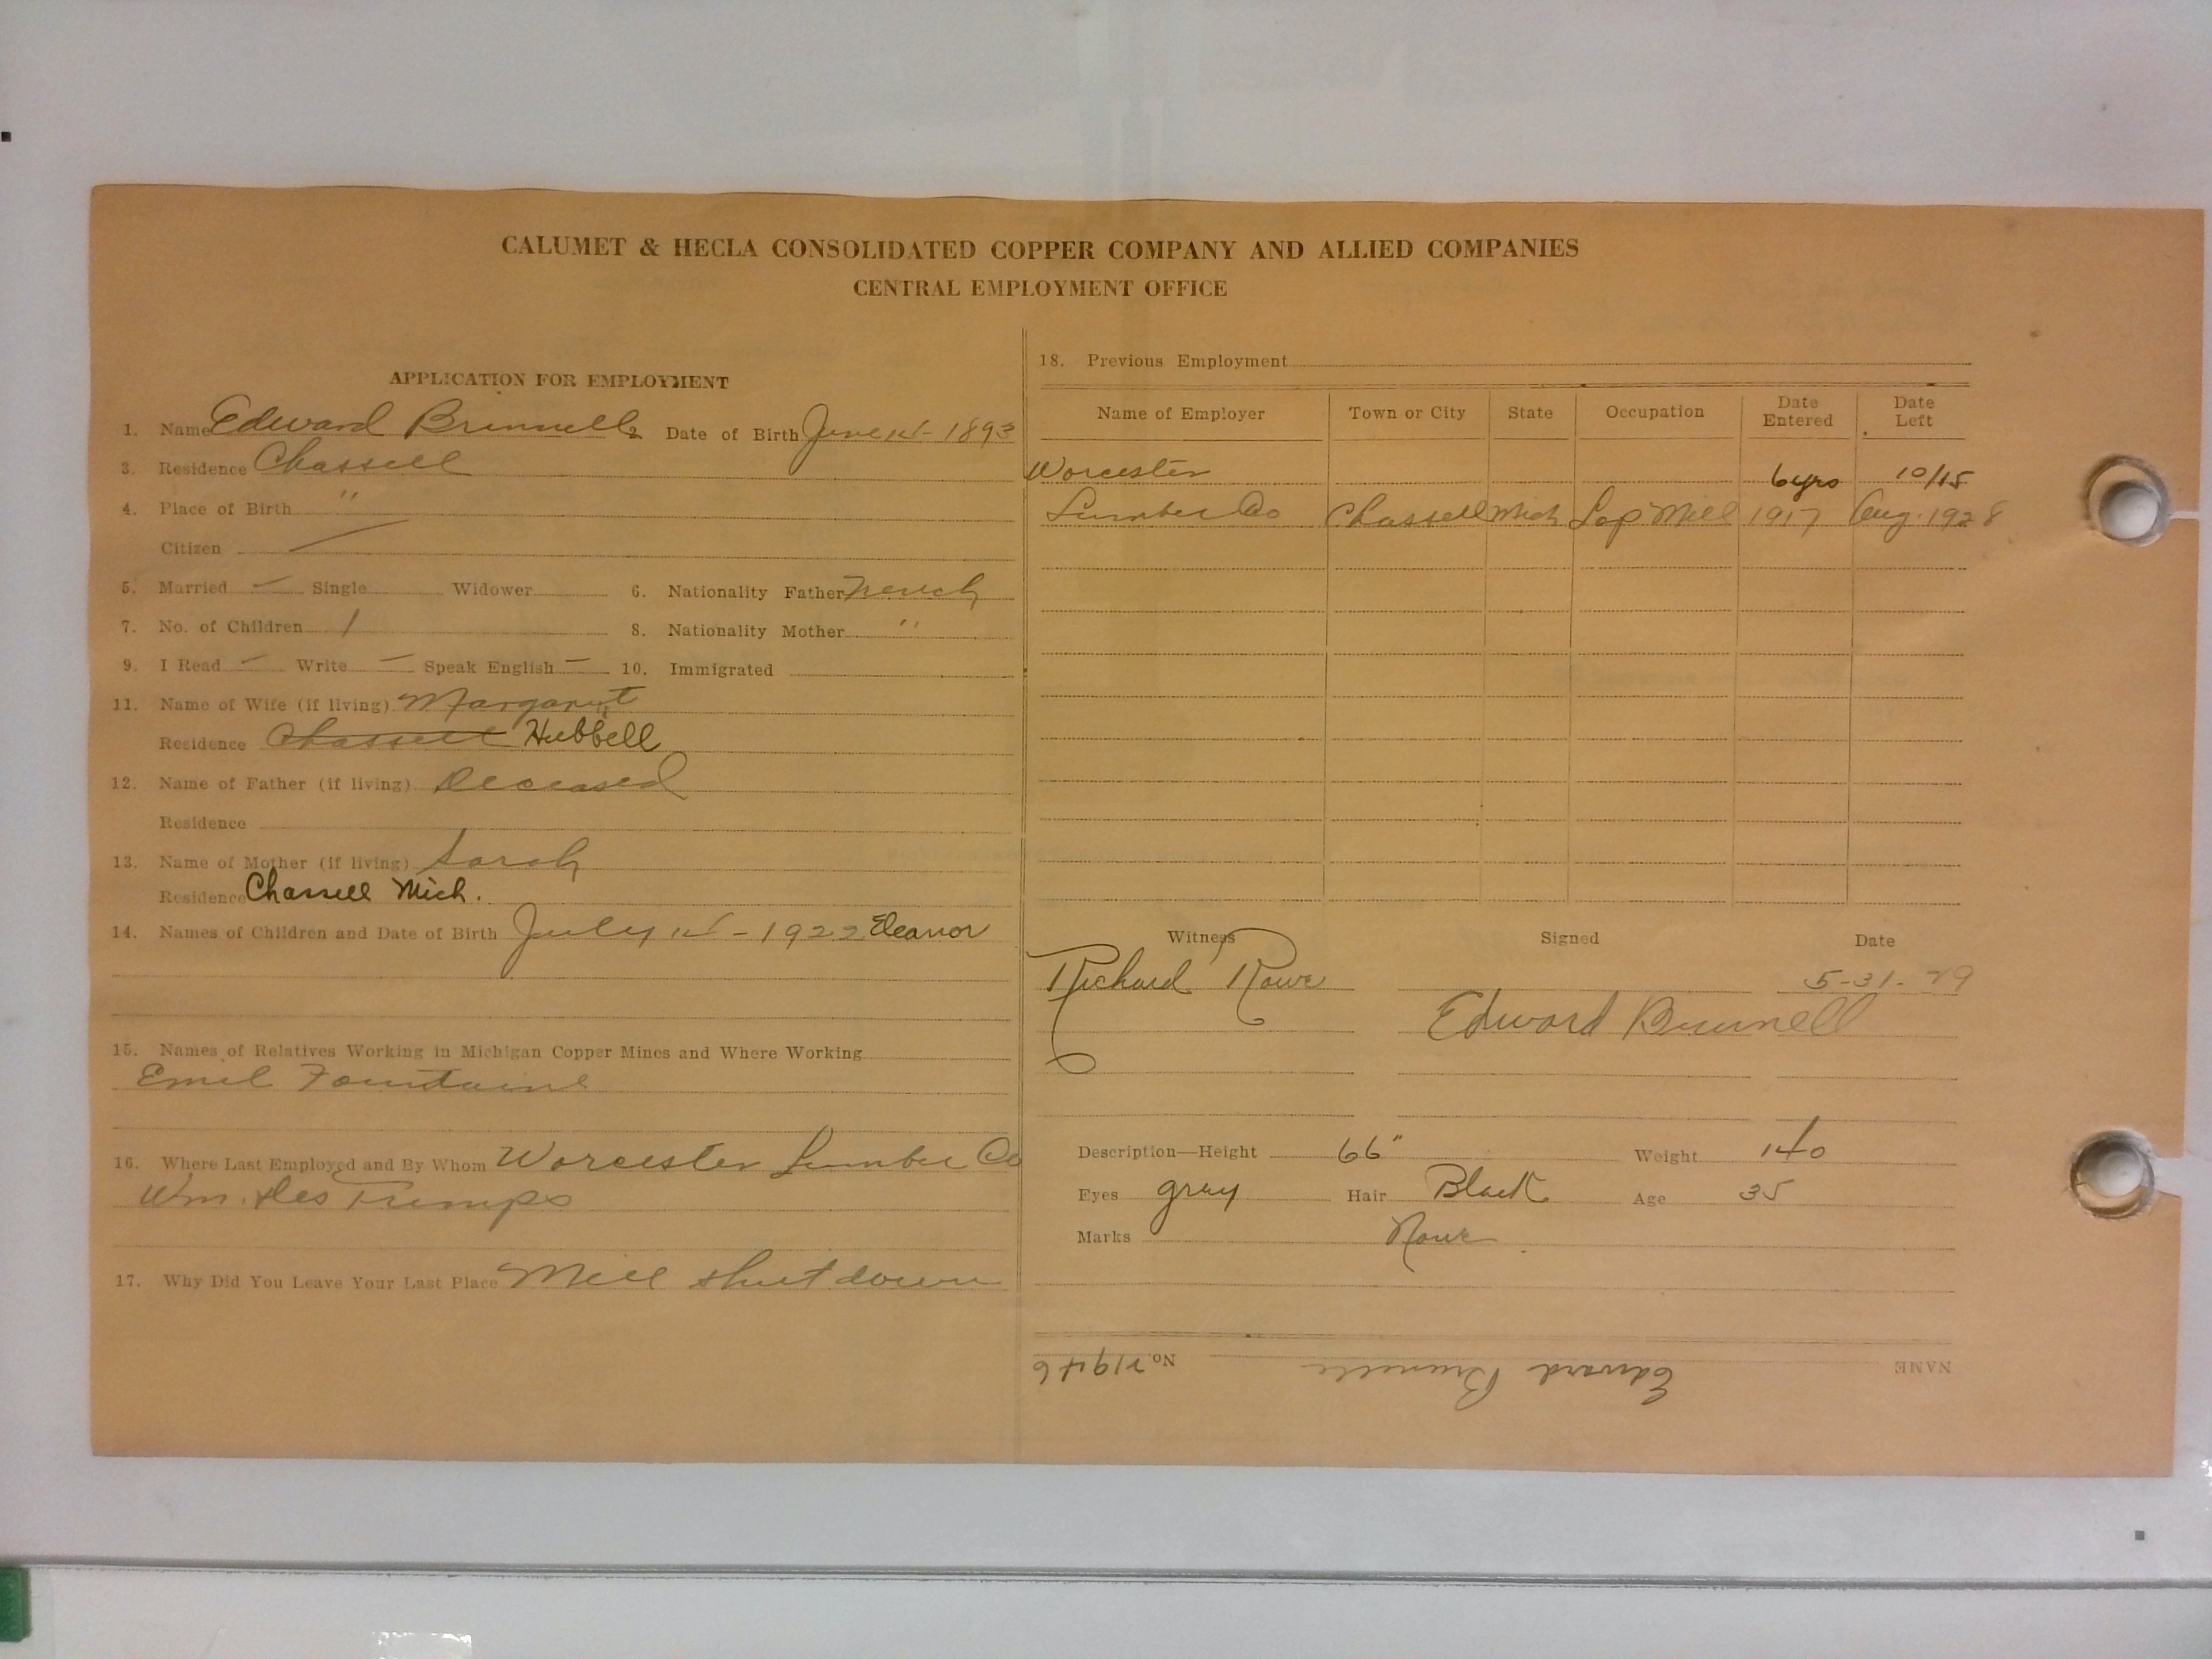 CALUMET & HECLA CONSOLIDATED COPPER COMPANY AND ALLIED COMPANIES
CENTRAL EMPLOYMENT OFFICE
APPLICATION FOR EMPLOYMENT
1. Name Edward Brunnelle Date of Birth June 1893
3. Residence Chassell
4. Place of Birth "
Citizen
5. Married Single Widower 6. Nationality Father French
7. No. of Children 1 8. Nationality Mother "
9. I Read Write Speak English 10. Immigrated
11. Name of Wife (if living) Margaret
Residence Chassell Hubbell
12. Name of Father (if living) Deceased
Residence
13. Name of Mother (if living) Sarah
Residence Chassell Mich.
14. Names of Children and Date of Birth July - 1922 Eleanor
15. Names of Relatives Working in Michigan Copper Mines and Where Working
Emil Fountaine
16. Where Last Employed and By Whom Worcester Lumber Co
Wm.
17. Why Did You Leave Your Last Place Mill shut down
18. Previous Employment
Name of Employer Town or City State Occupation Date Entered Date Left
Worcester 6yrs 10/15
Lumber Co Chassell Mich Mill 1917 Aug. 1928
Witness Signed Date
Richard Rowe 5-31-29
Edward Brunnell
Description—Height 66" Weight 140
Eyes gray Hair Black Age 35
Marks None
NAME Edward Brunelle No. 21946